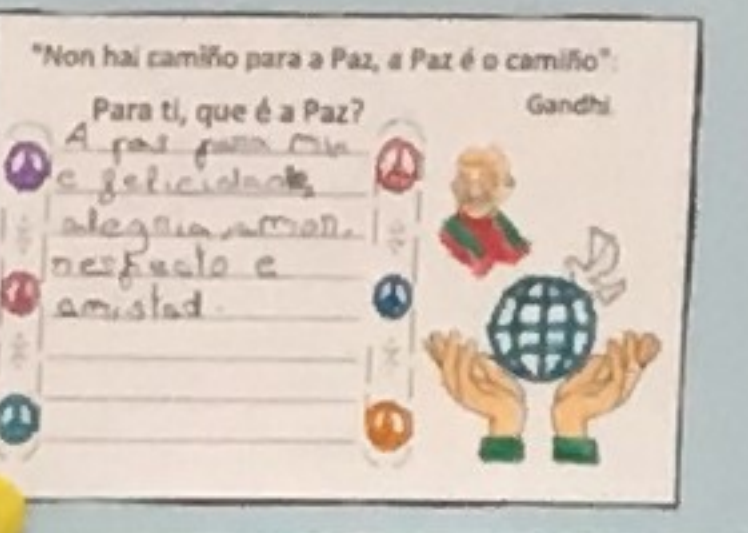 "Non hai camiño para a Paz, a Paz é o camiño":
Gandhi
Para ti, que é a Paz?
A paz para min
e felicidade,
alegria, amor,
respecto e
amistad.